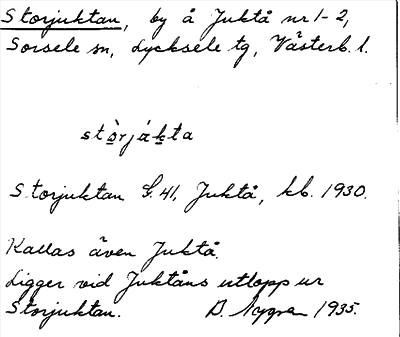 Storjuktan, by å Juktå nr 1-2,
Sorsele sn, Lycksele tg, Västerb. l.
stò̱rjáḵta
Storjuktan G. 41, Juktå, kb. 1930.
Kallas även Juktå.
Ligger vid Juktåns utlopp ur
Storjuktan. B. Nygren 1935.